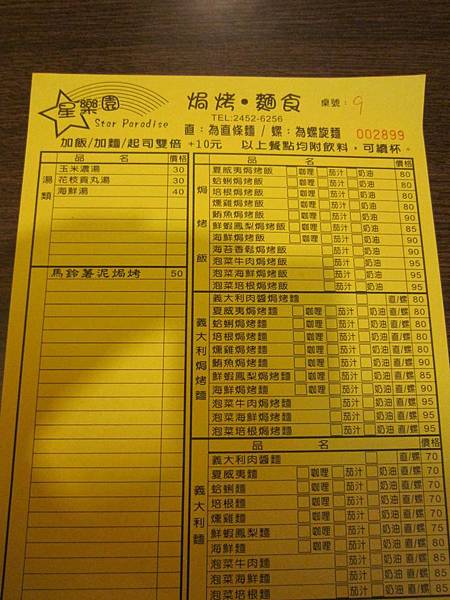 星樂園
Star Paradise
焗烤•麵食
桌號： 9
TEL:2452-6256
直：為直條麵 / 螺：為螺旋麵
002899
加飯/加麵/起司雙倍 +10元 以上餐點均附飲料，可續杯。
品 名 價格
湯類
玉米濃湯 30
花枝貢丸湯 30
海鮮湯 40
馬鈴薯泥焗烤 50
品 名 價格
焗烤飯
夏威夷焗烤飯 咖哩 茄汁 奶油 80
蛤蜊焗烤飯 咖哩 茄汁 奶油 80
培根焗烤飯 咖哩 茄汁 奶油 80
燻雞焗烤飯 咖哩 茄汁 奶油 80
鮪魚焗烤飯 咖哩 茄汁 奶油 90
鮮蝦鳳梨焗烤飯 咖哩 茄汁 奶油 85
海鮮焗烤飯 咖哩 茄汁 奶油 90
海苔香鬆焗烤飯 咖哩 茄汁 奶油
泡菜牛肉焗烤飯 茄汁 奶油 95
泡菜海鮮焗烤飯 茄汁 奶油 95
泡菜培根焗烤飯 茄汁 奶油 95
義大利焗烤麵
義大利肉醬焗烤麵 直/螺 80
夏威夷焗烤麵 咖哩 茄汁 奶油 直/螺 80
蛤蜊焗烤麵 咖哩 茄汁 奶油 直/螺 80
培根焗烤麵 咖哩 茄汁 奶油 直/螺 80
燻雞焗烤麵 咖哩 茄汁 奶油 直/螺 80
鮪魚焗烤麵 咖哩 茄汁 奶油 直/螺 90
鮮蝦鳳梨焗烤麵 咖哩 茄汁 奶油 直/螺 85
海鮮焗烤麵 咖哩 茄汁 奶油 直/螺 90
泡菜牛肉焗烤麵 茄汁 奶油 直/螺 95
泡菜海鮮焗烤麵 茄汁 奶油 直/螺 95
泡菜培根焗烤麵 茄汁 奶油 直/螺 95
品 名 價格
義大利麵
義大利肉醬麵 直/螺 70
夏威夷麵 咖哩 茄汁 奶油 直/螺 70
蛤蜊麵 咖哩 茄汁 奶油 直/螺 70
培根麵 咖哩 茄汁 奶油 直/螺 70
燻雞麵 咖哩 茄汁 奶油 直/螺 70
鮮蝦鳳梨麵 咖哩 茄汁 奶油 直/螺 75
海鮮麵 咖哩 茄汁 奶油 直/螺 80
泡菜牛肉麵 茄汁 奶油 直/螺 85
泡菜海鮮麵 茄汁 奶油 直/螺 85
泡菜培根麵 茄汁 奶油 直/螺 85